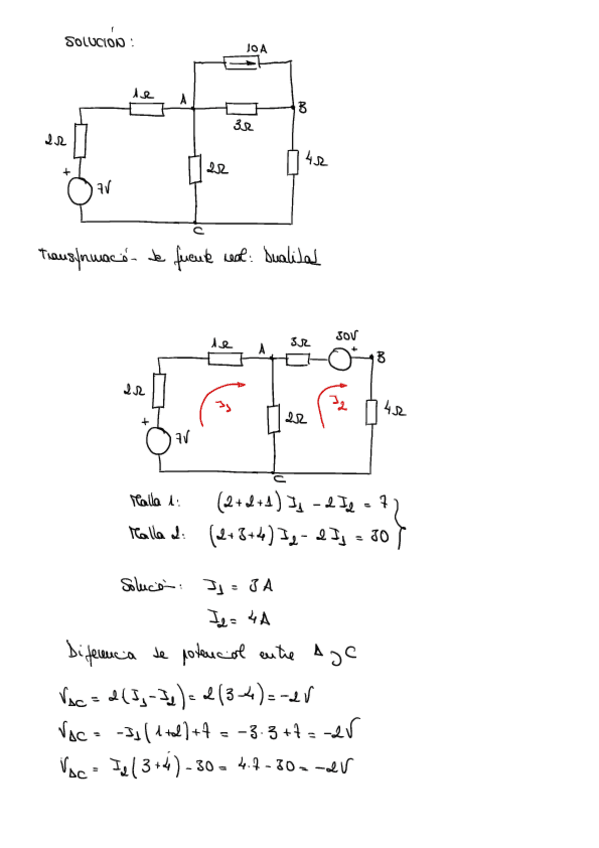 SOLUCIÓN:
10A
1Ω A B
3Ω
2Ω 2Ω 4Ω
+
7V
C
Transformació- de fuente real: Dualidad
1Ω A 3Ω 30V + B
2Ω I1 2Ω I2 4Ω
+
7V
C
Malla 1: (2+2+1) I1 - 2 I2 = 7
Malla 2: (2+3+4) I2 - 2 I1 = 30
Solución: I1 = 3A
I2 = 4A
Diferencia de potencial entre A y C
VAC = 2(I1-I2) = 2(3-4) = -2V
VAC = -I1(1+2)+7 = -3·3+7 = -2V
VAC = I2(3+4) - 30 = 4·7 - 30 = -2V